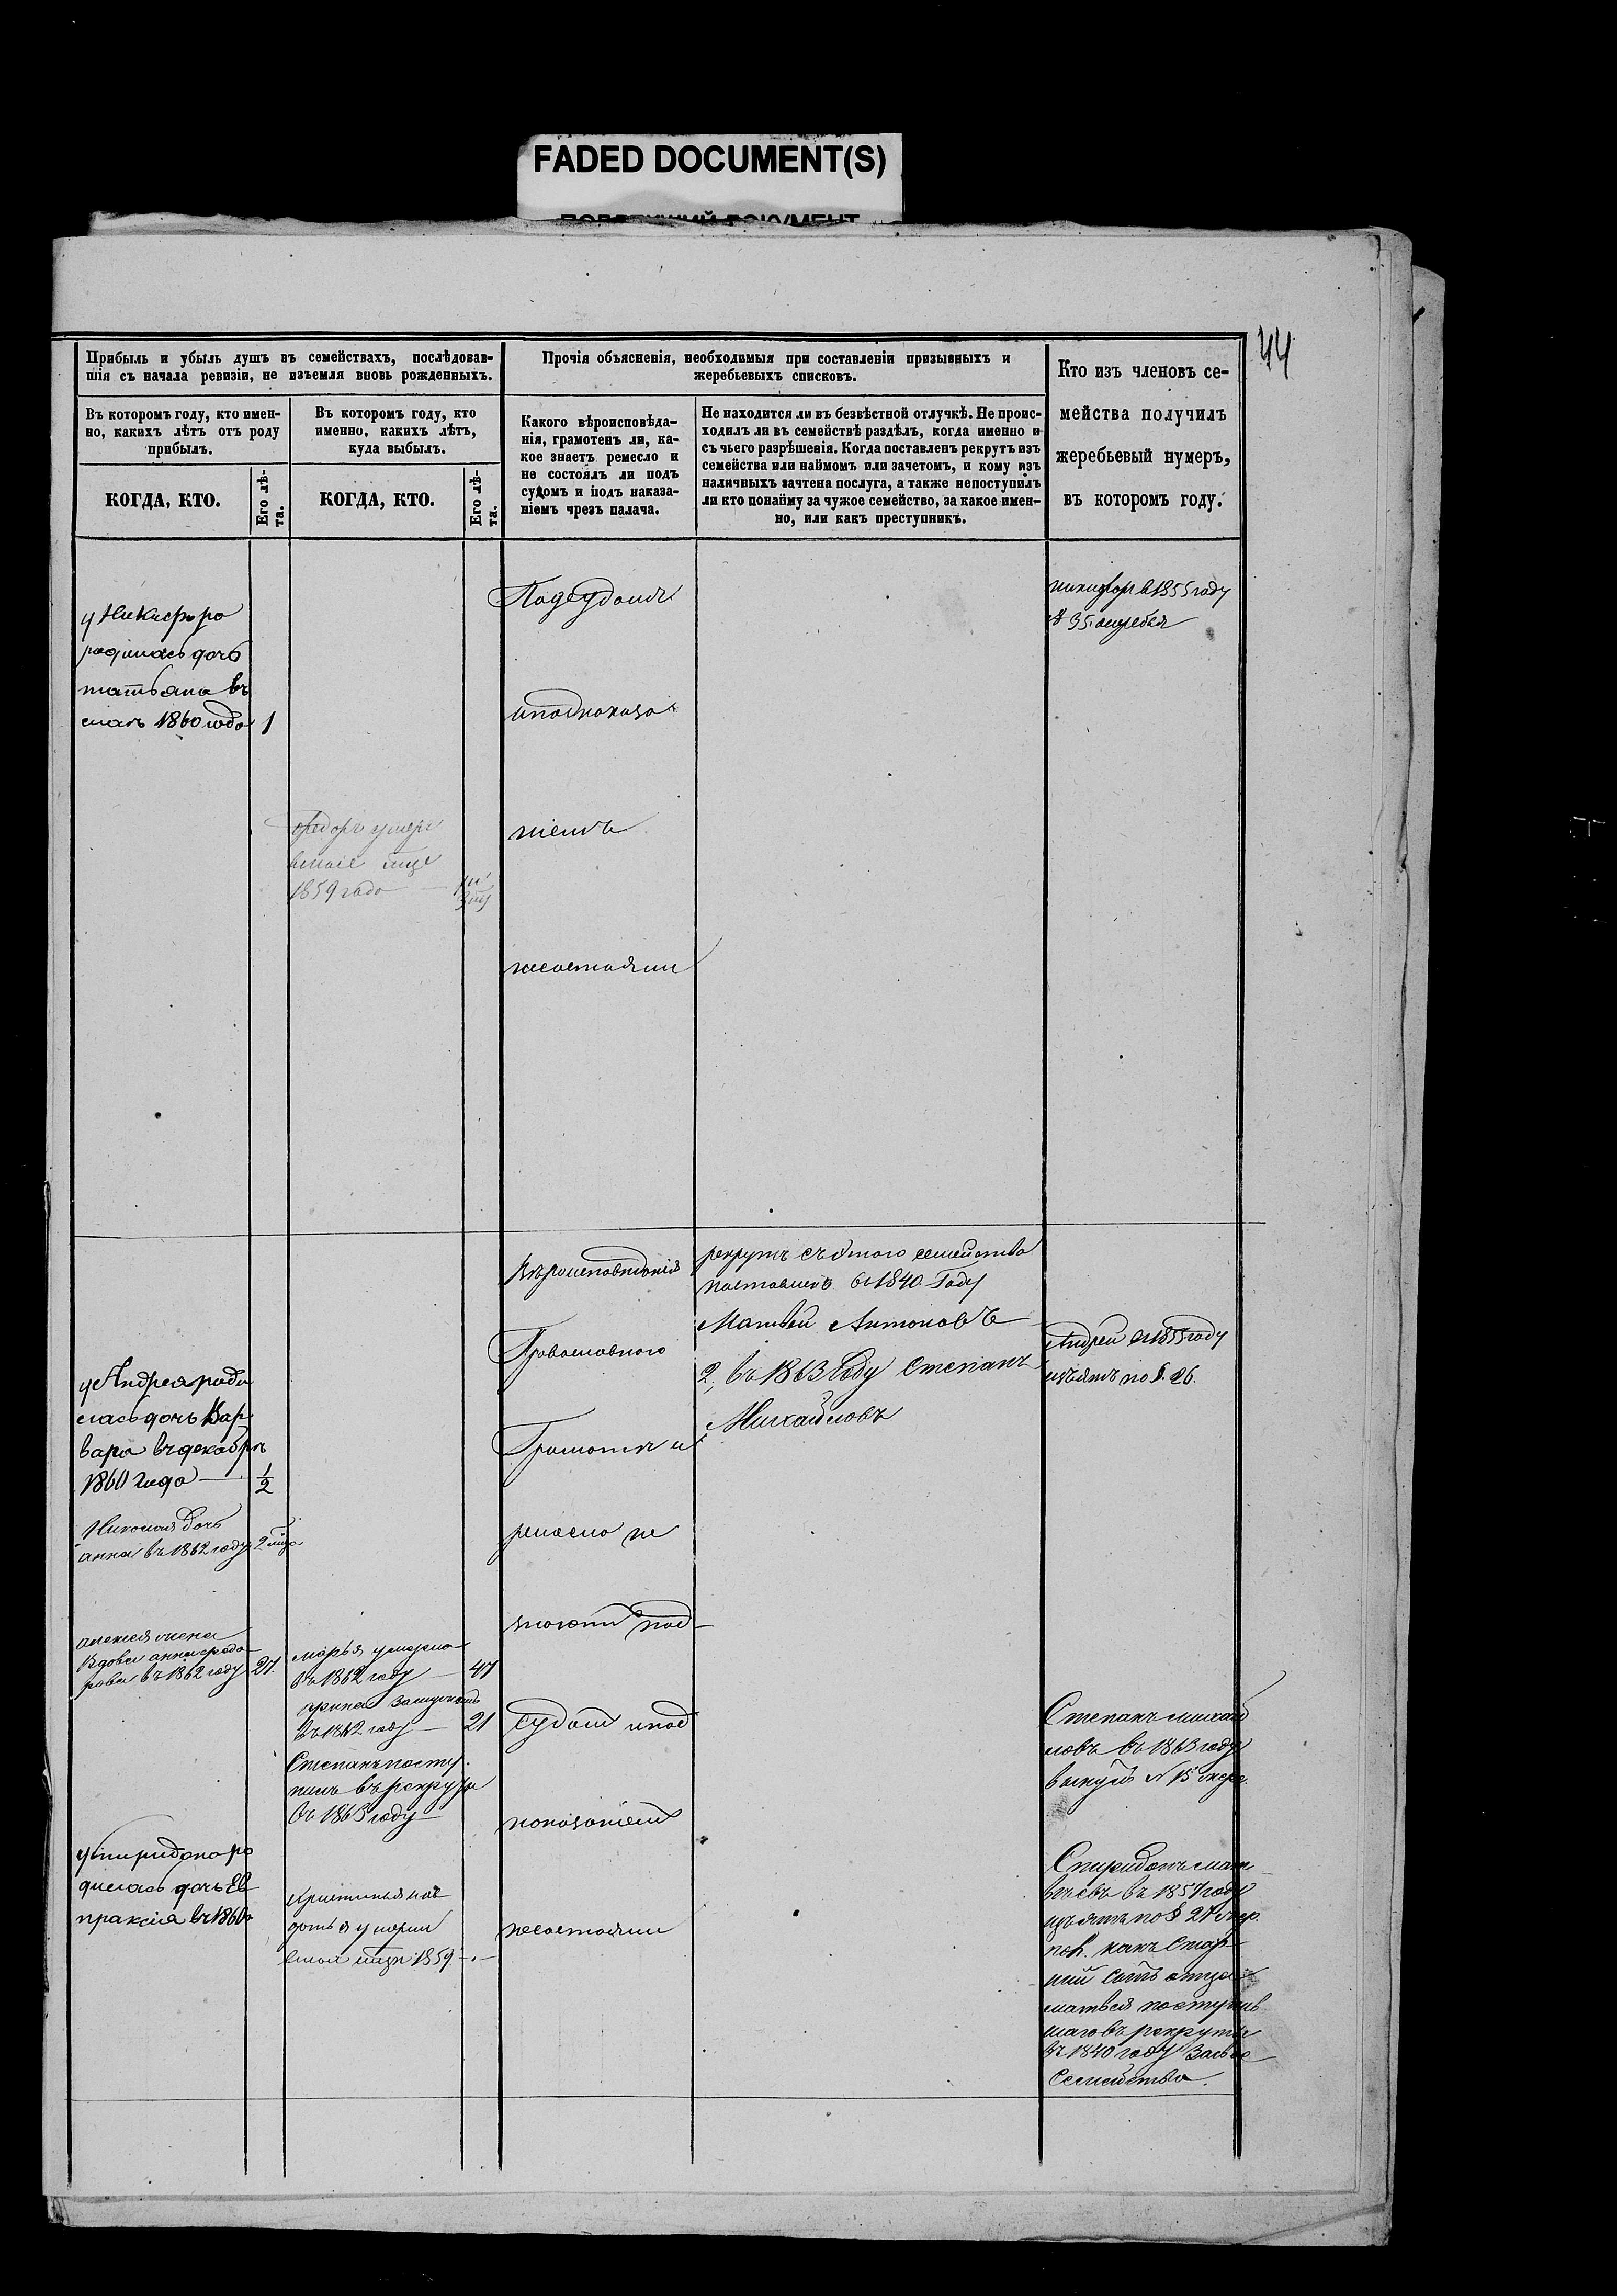 FADED DOCUMENT(S)
44
Прибыль и убыль душъ въ семействахъ, послѣдовав-
шія съ начала ревизіи, не изъемля вновь рожденныхъ.
Въ которомъ году, кто имен-
но, какихъ лѣтъ отъ роду
прибылъ.
КОГДА, КТО.
Его лѣ-
та.
Въ которомъ году, кто
именно, какихъ лѣтъ,
куда выбылъ.
КОГДА, КТО.
Его лѣ-
та.
Прочія объясненія, необходимыя при составленіи призывныхъ и
жеребьевыхъ списковъ.
Какого вѣроисповѣда-
нія, грамотенъ ли, ка-
кое знаетъ ремесло и
не состоялъ ли подъ
судомъ и подъ наказа-
ніемъ чрезъ палача.
Не находится ли въ безвѣстной отлучкѣ. Не проис-
ходилъ ли въ семействѣ раздѣлъ, когда именно и
съ чьего разрѣшенія. Когда поставленъ рекрутъ изъ
семейства или наймомъ или зачетомъ, и кому изъ
наличныхъ зачтена послуга, а также непоступилъ
ли кто понайму за чужое семейство, за какое имен-
но, или какъ преступникъ.
Кто изъ членовъ се-
мейства получилъ
жеребьевый нумеръ,
въ которомъ году.
у Никифора
родилась дочь
татьяна въ
маѣ 1860 года 1
федоръ умеръ
1859 года
Подсудомъ
иподнаказа
ніемъ
несостояли
никифоръ в 1855 году
№ 35. жеребья
у Андрея роди
лась дочь Вар
вара въ декабрѣ
1860 года — 1/2
Николая дочь
анна въ 1862 году 2 мца
алексея жена
Вдова анна федо
рова въ 1862 году 27.
у спиридона ро
дилась дочь Ев
праксія въ 1860
марья умерла
въ 1862 году — 47
въ 1862 году — 21
Степанъ посту
пилъ въ рекруты
въ 1863 году
1859
Вѣроисповѣданія
Православного
Грамотѣ и
ремесло не
знаютъ под
судомъ и под
наказаніемъ
несостояли
рекрутъ съ этого семейства
поставленъ в 1840. Году
Матвей Антоновъ
2, въ 1863 Году Степанъ
Михайловъ
Андрей в 1855 году
изъятъ по §. 26.
Степанъ михай
ловъ въ 1863 году
вынулъ № 15 жере.
Спиридонъ мат
вѣевъ въ 1857 году
изъятъ по § 27
какъ стар
шій сынъ отца
матвея поступив
шаго въ рекруты
въ 1840 году за свое
Семейство.